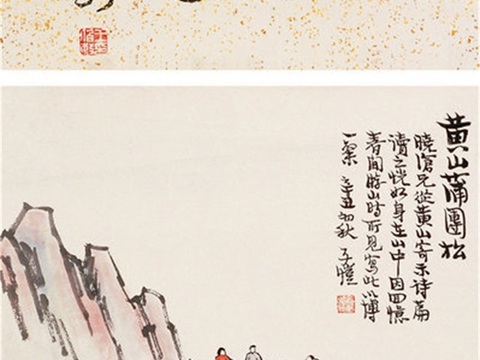 黄山蒲團松
曉滄兄從黄山寄示詩篇
讀之恍如身在山中因回憶
春間游山時所見寫此以博
一粲 辛丑初秋 子愷